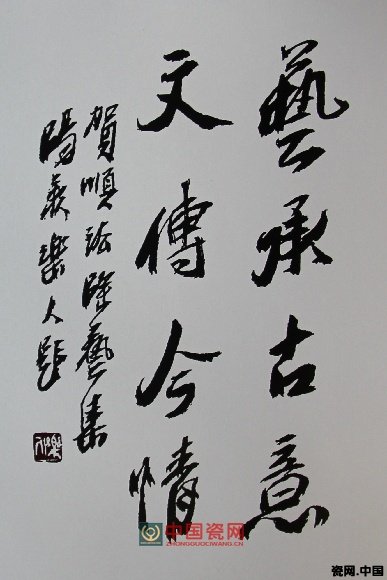 藝承古意
文傳今情
賀順法陶藝集
陽羨樂人題
中国瓷网
ZHONGGUOCIWANG.CN
瓷网.中国